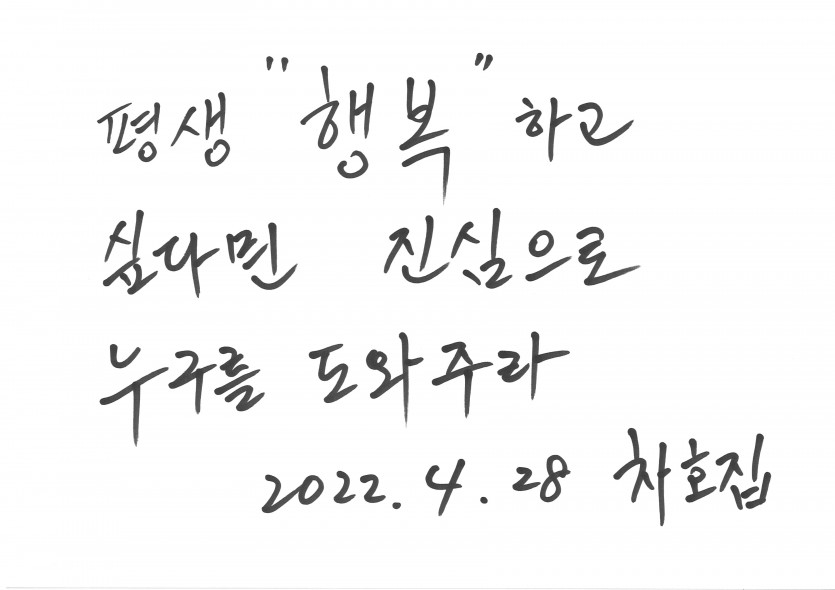 평생 "행복" 하고
싶다면 진심으로
누구를 도와주라
2022. 4. 28 차호집